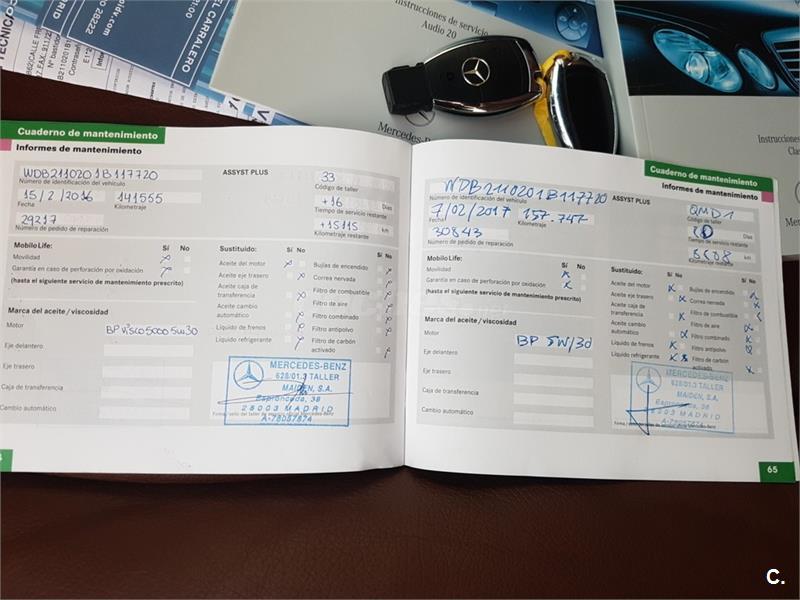 Instrucciones de servicio
Audio 20
EL CARRALERO
28222
Instrucciones
Cuaderno de mantenimiento
Informes de mantenimiento
WDB2110201B117720
Número de identificación del vehículo
15/2/2016 141555
Fecha Kilometraje
29217
Número de pedido de reparación
ASSYST PLUS
33
Código de taller
+16 Días
Tiempo de servicio restante
+15115 km
MobiloLife: Sí No
Movilidad
Garantía en caso de perforación por oxidación
(hasta el siguiente servicio de mantenimiento prescrito)
Marca del aceite / viscosidad
Motor BP visco 5000 5W30
Eje delantero
Eje trasero
Caja de transferencia
Cambio automático
Sustituido: Sí No Sí No
Aceite del motor
Aceite eje trasero
Aceite caja de transferencia
Aceite cambio automático
Líquido de frenos
Líquido refrigerante
Bujías de encendido
Correa nervada
Filtro de combustible
Filtro de aire
Filtro combinado
Filtro antipolvo
Filtro de carbón activado
MERCEDES-BENZ
628/01.3 TALLER
MAIDEN, S.A.
Espronceda, 38
28003 MADRID
A-78057874
Cuaderno de mantenimiento
Informes de mantenimiento
WDB2110201B117720
Número de identificación del vehículo
7/02/2017 157.747
Fecha Kilometraje
30843
Número de pedido de reparación
ASSYST PLUS
Código de taller
Días
Tiempo de servicio restante
km
Kilometraje restante
MobiloLife: Sí No
Movilidad
Garantía en caso de perforación por oxidación
(hasta el siguiente servicio de mantenimiento prescrito)
Marca del aceite / viscosidad
Motor BP 5W/30
Eje delantero
Eje trasero
Caja de transferencia
Cambio automático
Sustituido: Sí No Sí No
Aceite del motor
Aceite eje trasero
Aceite caja de transferencia
Aceite cambio automático
Líquido de frenos
Líquido refrigerante
Bujías de encendido
Correa nervada
Filtro de combustible
Filtro de aire
Filtro combinado
Filtro antipolvo
Filtro de carbón activado
MERCEDES-BENZ
628/01.3 TALLER
MAIDEN, S.A.
Espronceda, 38
28003 MADRID
A-78057874
65
C.